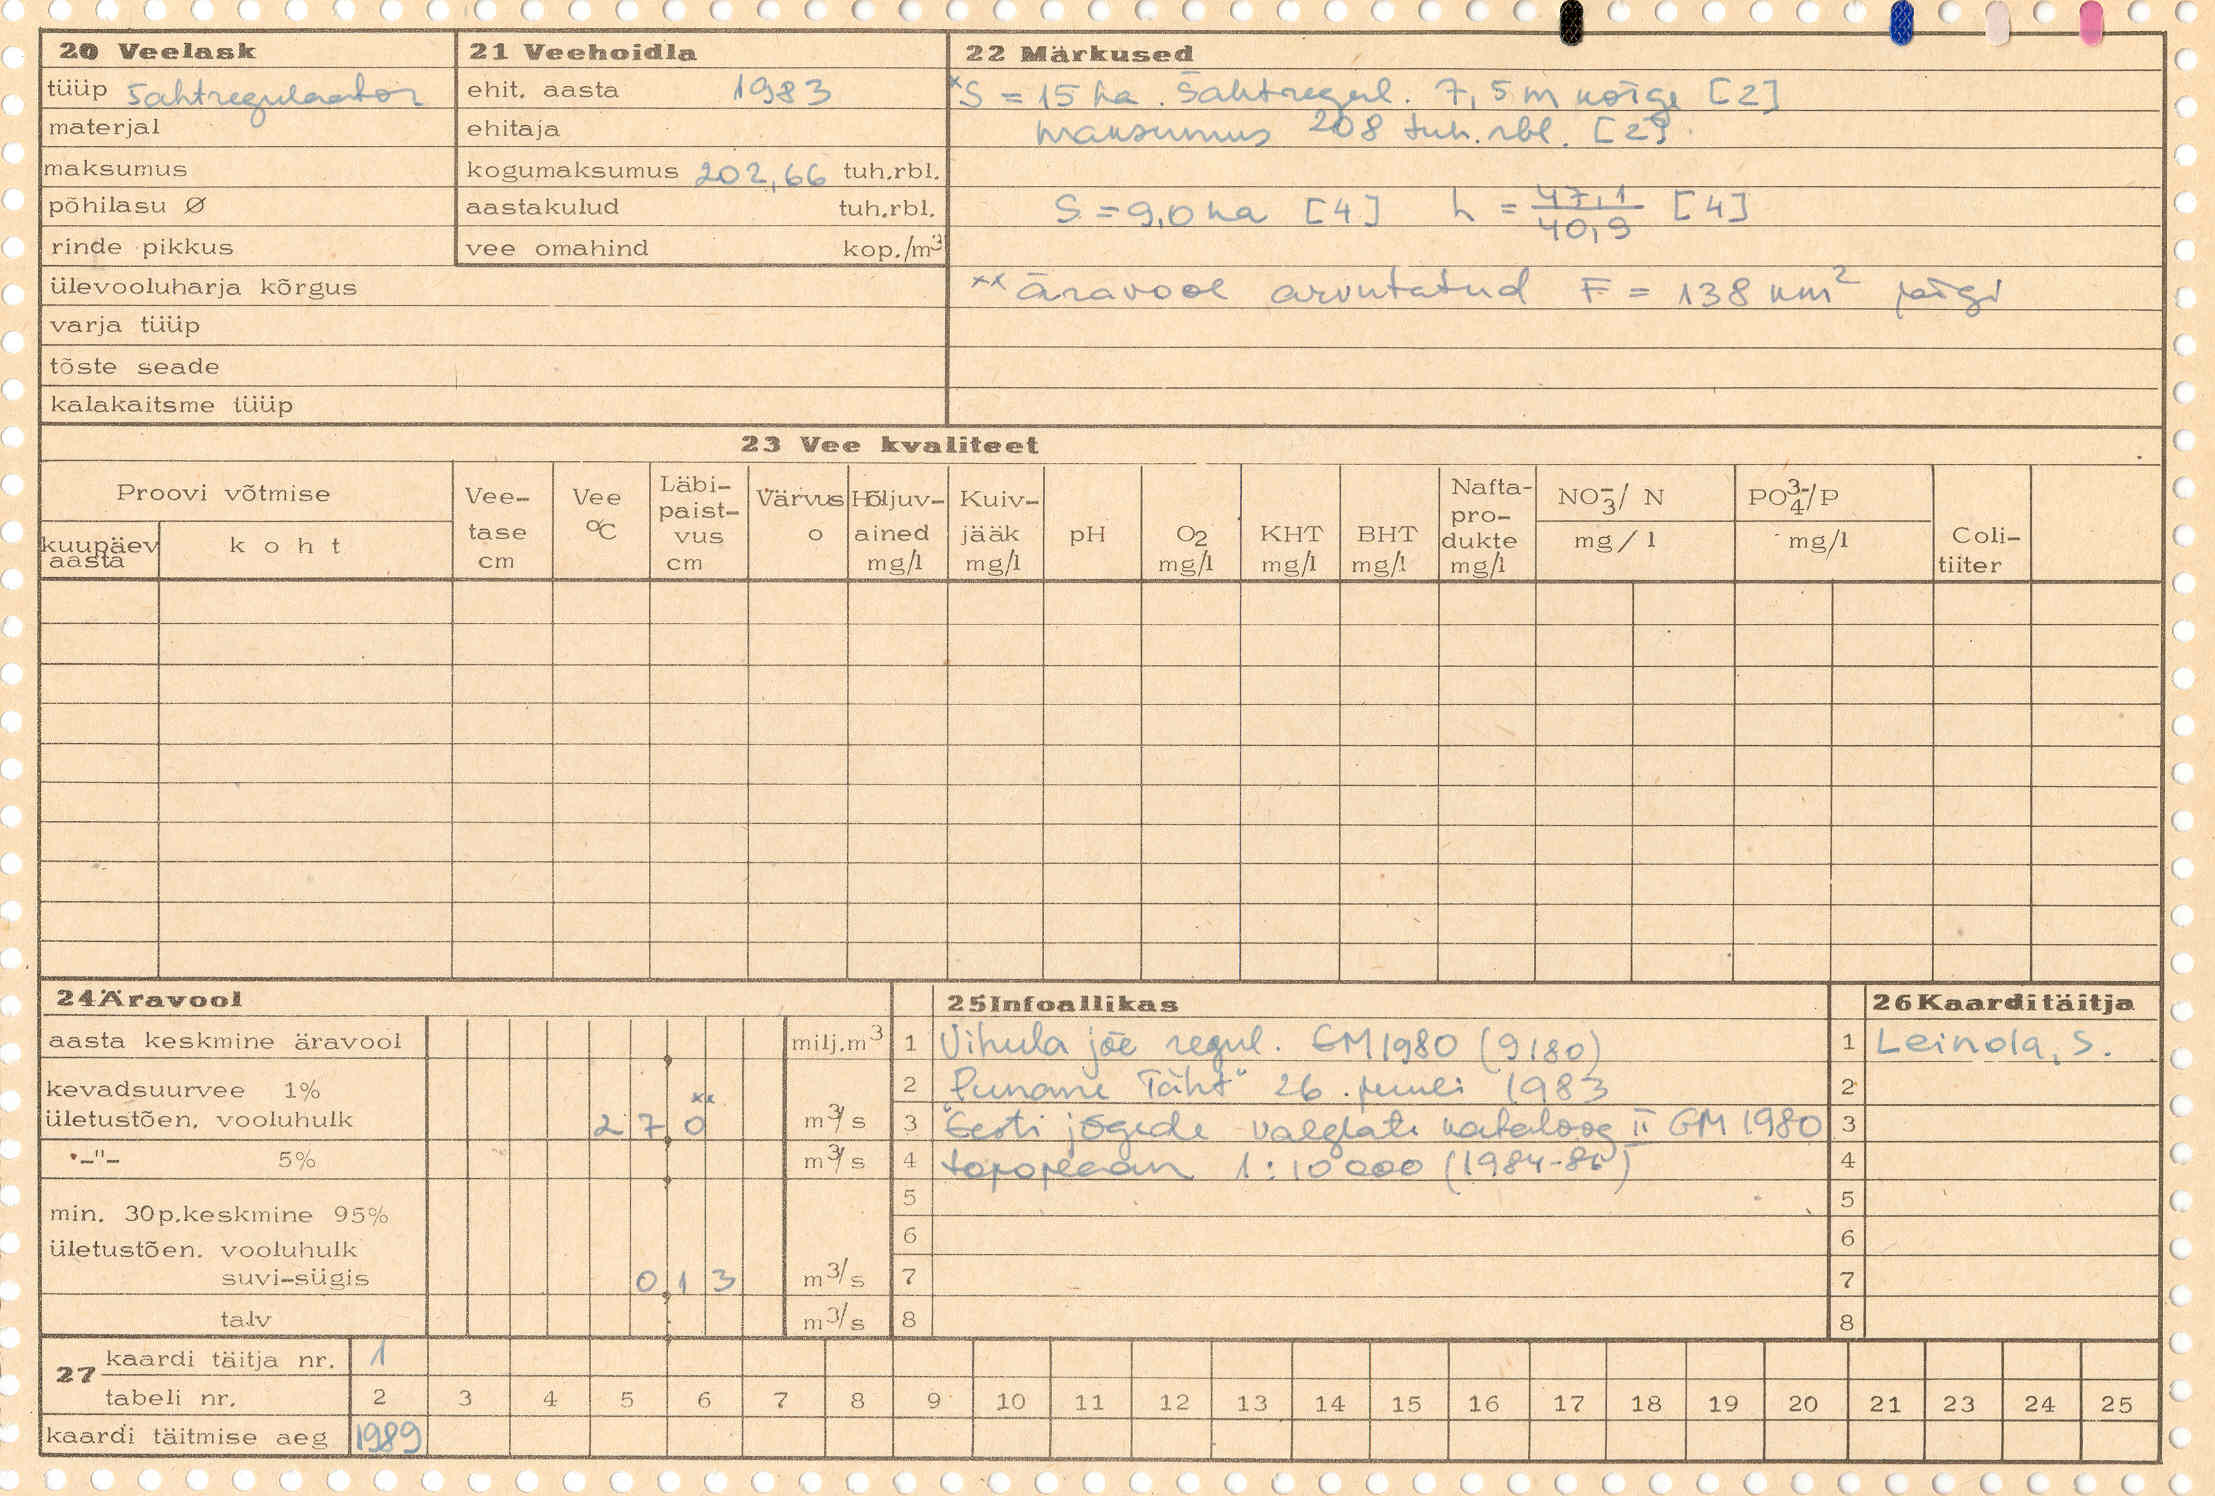 20 Veelask
tüüp šahtregulaator
materjal
maksumus
põhilasu Ø
rinde pikkus
ülevooluharja kõrgus
varja tüüp
tõste seade
kalakaitsme tüüp
21 Veehoidla
ehit. aasta 1983
ehitaja
kogumaksumus 202,66 tuh.rbl.
aastakulud tuh.rbl.
vee omahind kop./m³
22 Märkused
*S = 15 ha. Šahtregul. 7,5 m kõige [2]
maksumus 208 tuh. rbl. [2]
S = 9,0 ha [4] h = 47,1/40,9 [4]
** äravool arvutatud F = 138 km² järgi
23 Vee kvaliteet
Proovi võtmise
kuupäev aasta
koht
Vee-tase cm
Vee °C
Läbi-paist-vus cm
Värvus o
Hõljuv-ained mg/l
Kuiv-jääk mg/l
pH
O₂ mg/l
KHT mg/l
BHT mg/l
Nafta-pro-dukte mg/l
NO₃⁻/ N mg/l
PO₄³⁻/P mg/l
Coli-tiiter
24 Äravool
aasta keskmine äravool milj.m³
kevadsuurvee 1%
ületustõen. vooluhulk 27,0** m³/s
-"- 5% m³/s
min. 30p.keskmine 95%
ületustõen. vooluhulk
suvi-sügis 0,13 m³/s
talv m³/s
25 Infoallikas
1 Vihula jõe regul. EM 1980 (9180)
2 "Punane Täht" 26. juuli 1983
3 "Eesti jõgede valglate kataloog II EM 1980
4 topoplaan 1:10 000 (1984-86)
5
6
7
8
26 Kaarditäitja
1 Leinola, S.
2
3
4
5
6
7
8
27 kaardi täitja nr. 1
tabeli nr. 2 3 4 5 6 7 8 9 10 11 12 13 14 15 16 17 18 19 20 21 23 24 25
kaardi täitmise aeg 1989